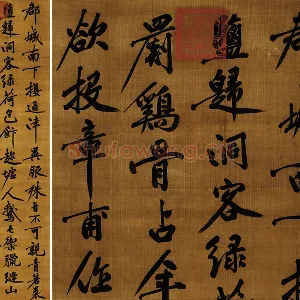 郡城南下接通津異服殊音不可親青箬裹
鹽歸洞客綠荷包飯趁墟人鵞毛禦臘縫山
鹽歸洞客綠
罽鷄骨占年
欲投章甫作